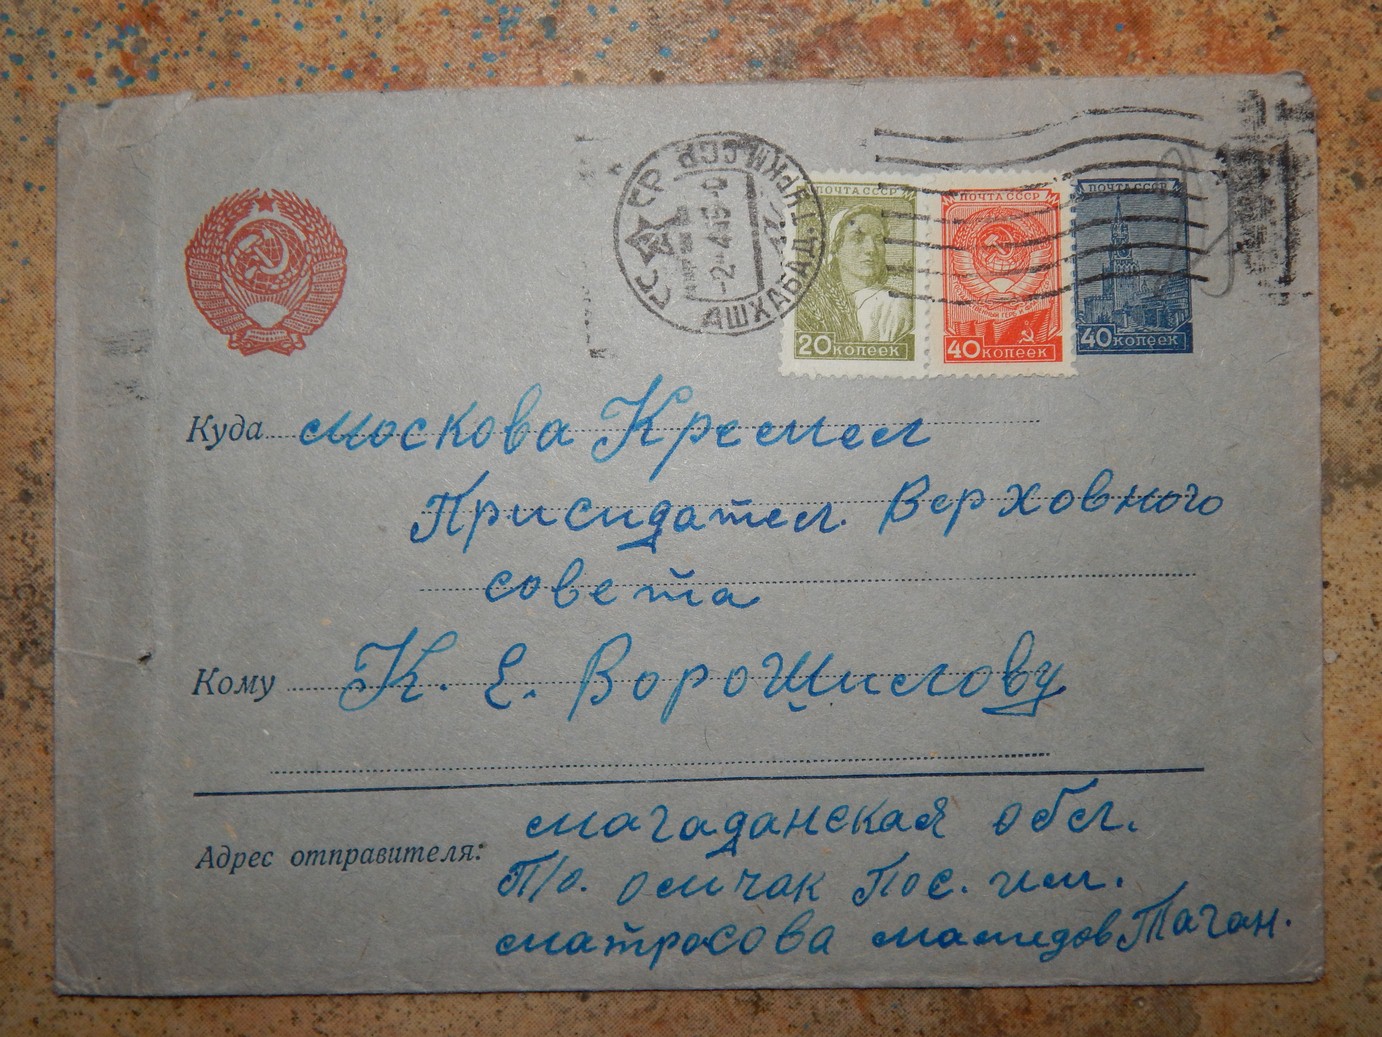 СССР
ТУРКМ. ССР
АШХАБАД
ПОЧТА СССР
20 КОПЕЕК
ПОЧТА СССР
40 КОПЕЕК
ПОЧТА СССР
40 КОПЕЕК
Куда москова Кремел
Присидател. Верховного
совета
Кому К. Е. Ворошилову
Адрес отправителя: магаданская обл.
П/о. омчак Пос. им.
матросова мамедов Таган.